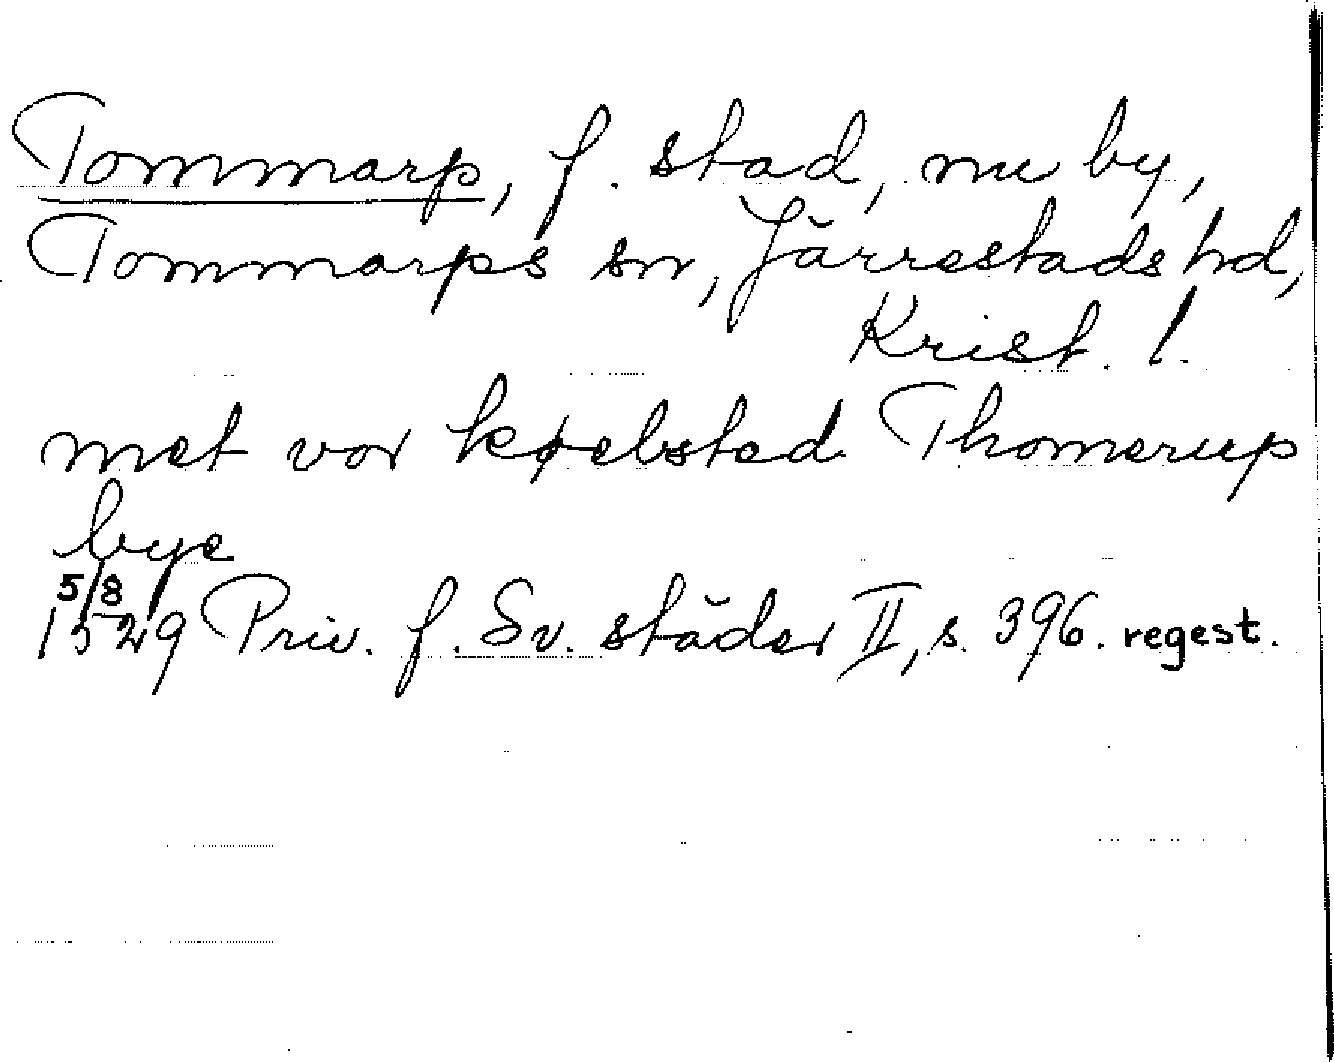 Tommarp, f. stad, nu by,
Tommarps sn, Järrestads hd,
Krist. l.
met vor køebsted Thomerup
bye
5/8
1529 Priv. f. Sv. städer II, s. 396. regest.